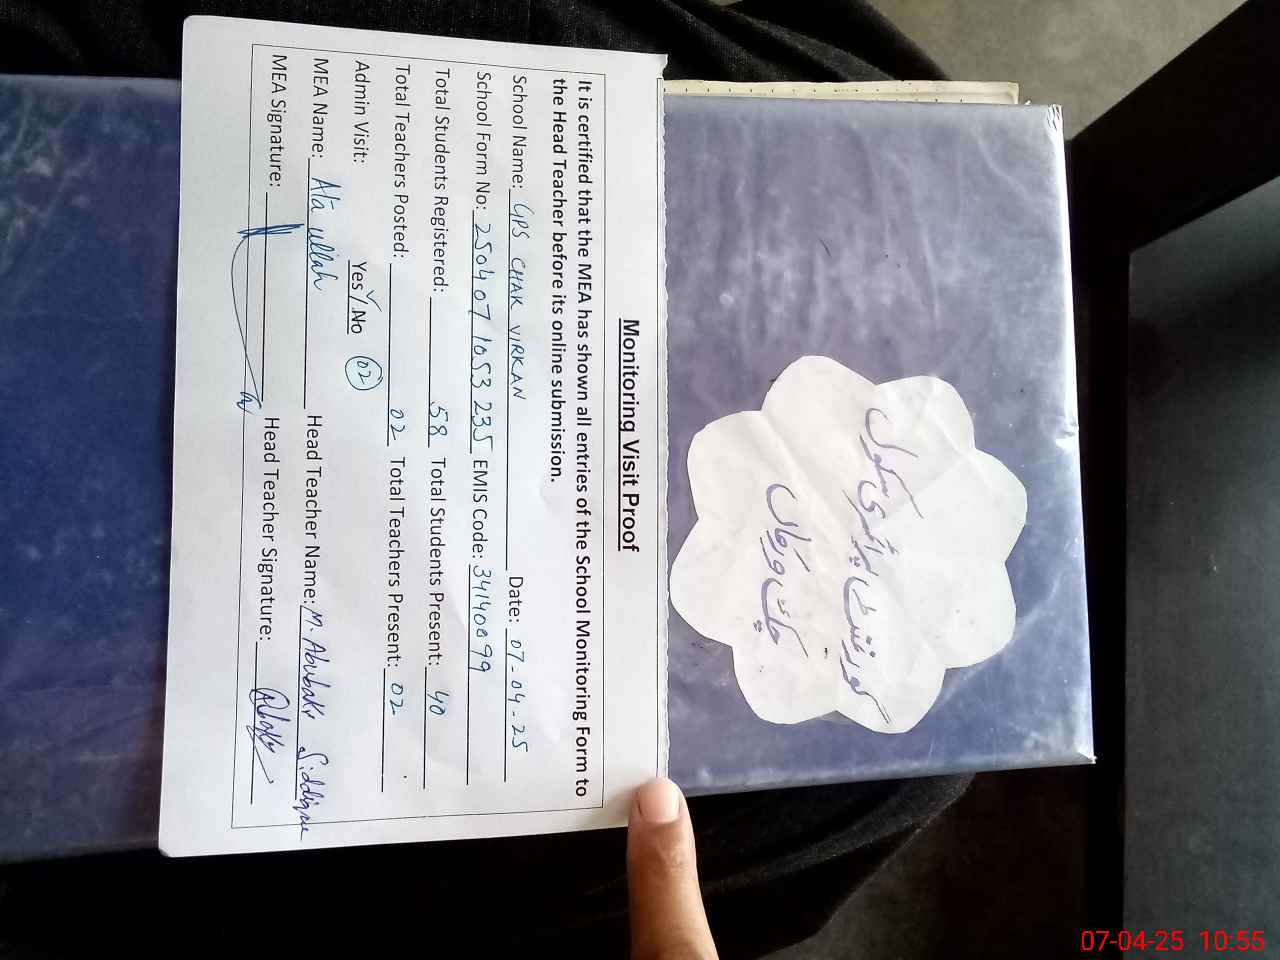 Monitoring Visit Proof
It is certified that the MEA has shown all entries of the School Monitoring Form to
the Head Teacher before its online submission.
School Name: GPS CHAK VIRKAN Date: 07-04-25
School Form No: 250407 1053 235 EMIS Code: 34140099
Total Students Registered: 58 Total Students Present: 40
Total Teachers Posted: 02 Total Teachers Present: 02
Admin Visit: Yes / No 02
MEA Name: Ata ullah Head Teacher Name: M. Abubakr Siddique
MEA Signature: Head Teacher Signature:
گورنمنٹ پرائمری سکول
چک ورکاں
07-04-25 10:55